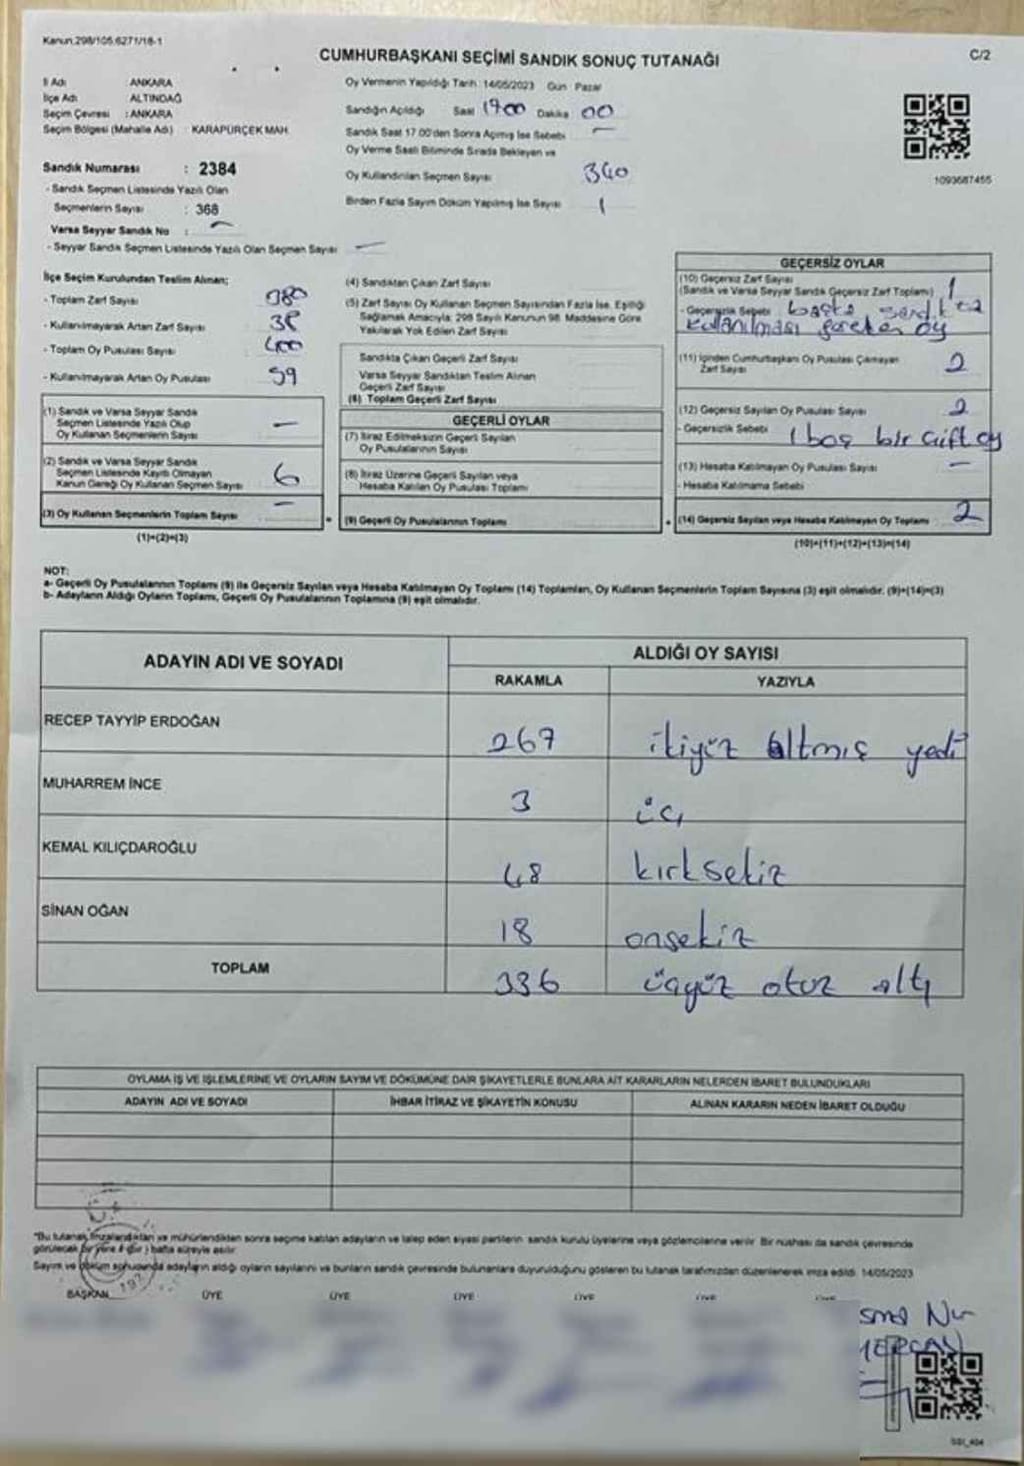 Kanun.298/105.6271/18-1
CUMHURBAŞKANI SEÇİMİ SANDIK SONUÇ TUTANAĞI
C/2
İl Adı : ANKARA
İlçe Adı : ALTINDAĞ
Seçim Çevresi : ANKARA
Seçim Bölgesi (Mahalle Adı) : KARAPÜRÇEK MAH.
Sandık Numarası : 2384
- Sandık Seçmen Listesinde Yazılı Olan
Seçmenlerin Sayısı : 368
Varsa Seyyar Sandık No :
- Seyyar Sandık Seçmen Listesinde Yazılı Olan Seçmen Sayısı
Oy Vermenin Yapıldığı Tarih: 14/05/2023 Gün: Pazar
Sandığın Açıldığı Saat 1700 Dakika 00
Sandık Saat 17.00'den Sonra Açılmış İse Sebebi
Oy Verme Saati Bitiminde Sırada Bekleyen ve
Oy Kullandırılan Seçmen Sayısı 340
Birden Fazla Sayım Döküm Yapılmış İse Sayısı 1
1093687455
İlçe Seçim Kurulundan Teslim Alınan;
- Toplam Zarf Sayısı 380
- Kullanılmayarak Artan Zarf Sayısı 38
- Toplam Oy Pusulası Sayısı 400
- Kullanılmayarak Artan Oy Pusulası 59
(1) Sandık ve Varsa Seyyar Sandık
Seçmen Listesinde Yazılı Olup
Oy Kullanan Seçmenlerin Sayısı —
(2) Sandık ve Varsa Seyyar Sandık
Seçmen Listesinde Kayıtlı Olmayan
Kanun Gereği Oy Kullanan Seçmen Sayısı 6
(3) Oy Kullanan Seçmenlerin Toplam Sayısı —
(1)+(2)=(3)
(4) Sandıktan Çıkan Zarf Sayısı
(5) Zarf Sayısı Oy Kullanan Seçmen Sayısından Fazla İse, Eşitliği
Sağlamak Amacıyla; 298 Sayılı Kanunun 98. Maddesine Göre
Yakılarak Yok Edilen Zarf Sayısı
Sandıkta Çıkan Geçerli Zarf Sayısı
Varsa Seyyar Sandıktan Teslim Alınan
Geçerli Zarf Sayısı
(6) Toplam Geçerli Zarf Sayısı
GEÇERLİ OYLAR
(7) İtiraz Edilmeksizin Geçerli Sayılan
Oy Pusulalarının Sayısı
(8) İtiraz Üzerine Geçerli Sayılan veya
Hesaba Katılan Oy Pusulası Toplamı
(9) Geçerli Oy Pusulalarının Toplamı
GEÇERSİZ OYLAR
(10) Geçersiz Zarf Sayısı
(Sandık ve Varsa Seyyar Sandık Geçersiz Zarf Toplamı) 1
- Geçersizlik Sebebi başka sandıkta
kullanılması gereken oy
(11) İçinden Cumhurbaşkanı Oy Pusulası Çıkmayan
Zarf Sayısı 2
(12) Geçersiz Sayılan Oy Pusulası Sayısı 2
- Geçersizlik Sebebi 1 boş bir çift oy
(13) Hesaba Katılmayan Oy Pusulası Sayısı —
- Hesaba Katılmama Sebebi
(14) Geçersiz Sayılan veya Hesaba Katılmayan Oy Toplamı 2
(10)+(11)+(12)+(13)=(14)
NOT:
a- Geçerli Oy Pusulalarının Toplamı (9) ile Geçersiz Sayılan veya Hesaba Katılmayan Oy Toplamı (14) Toplamları, Oy Kullanan Seçmenlerin Toplam Sayısına (3) eşit olmalıdır. (9)+(14)=(3)
b- Adayların Aldığı Oyların Toplamı, Geçerli Oy Pusulalarının Toplamına (9) eşit olmalıdır.
ADAYIN ADI VE SOYADI
ALDIĞI OY SAYISI
RAKAMLA
YAZIYLA
RECEP TAYYİP ERDOĞAN 267 ikiyüz altmış yedi
MUHARREM İNCE 3 üç
KEMAL KILIÇDAROĞLU 48 kırksekiz
SİNAN OĞAN 18 onsekiz
TOPLAM 336 üçyüz otuz altı
OYLAMA İŞ VE İŞLEMLERİNE VE OYLARIN SAYIM VE DÖKÜMÜNE DAİR ŞİKAYETLERLE BUNLARA AİT KARARLARIN NELERDEN İBARET BULUNDUKLARI
ADAYIN ADI VE SOYADI
İHBAR İTİRAZ VE ŞİKAYETİN KONUSU
ALINAN KARARIN NEDEN İBARET OLDUĞU
*Bu tutanak, imzalandıktan ve mühürlendikten sonra seçime katılan adayların ve talep eden siyasi partilerin sandık kurulu üyelerine veya gözlemcilerine verilir. Bir nüshası da sandık çevresinde
görülecek bir yere 1 (bir) hafta süreyle asılır.
Sayım ve döküm sonucunda adayların aldığı oyların sayılarını ve bunların sandık çevresinde bulunanlara duyurulduğunu gösteren bu tutanak tarafımızdan düzenlenerek imza edildi. 14/05/2023
BAŞKAN ÜYE ÜYE ÜYE ÜYE ÜYE